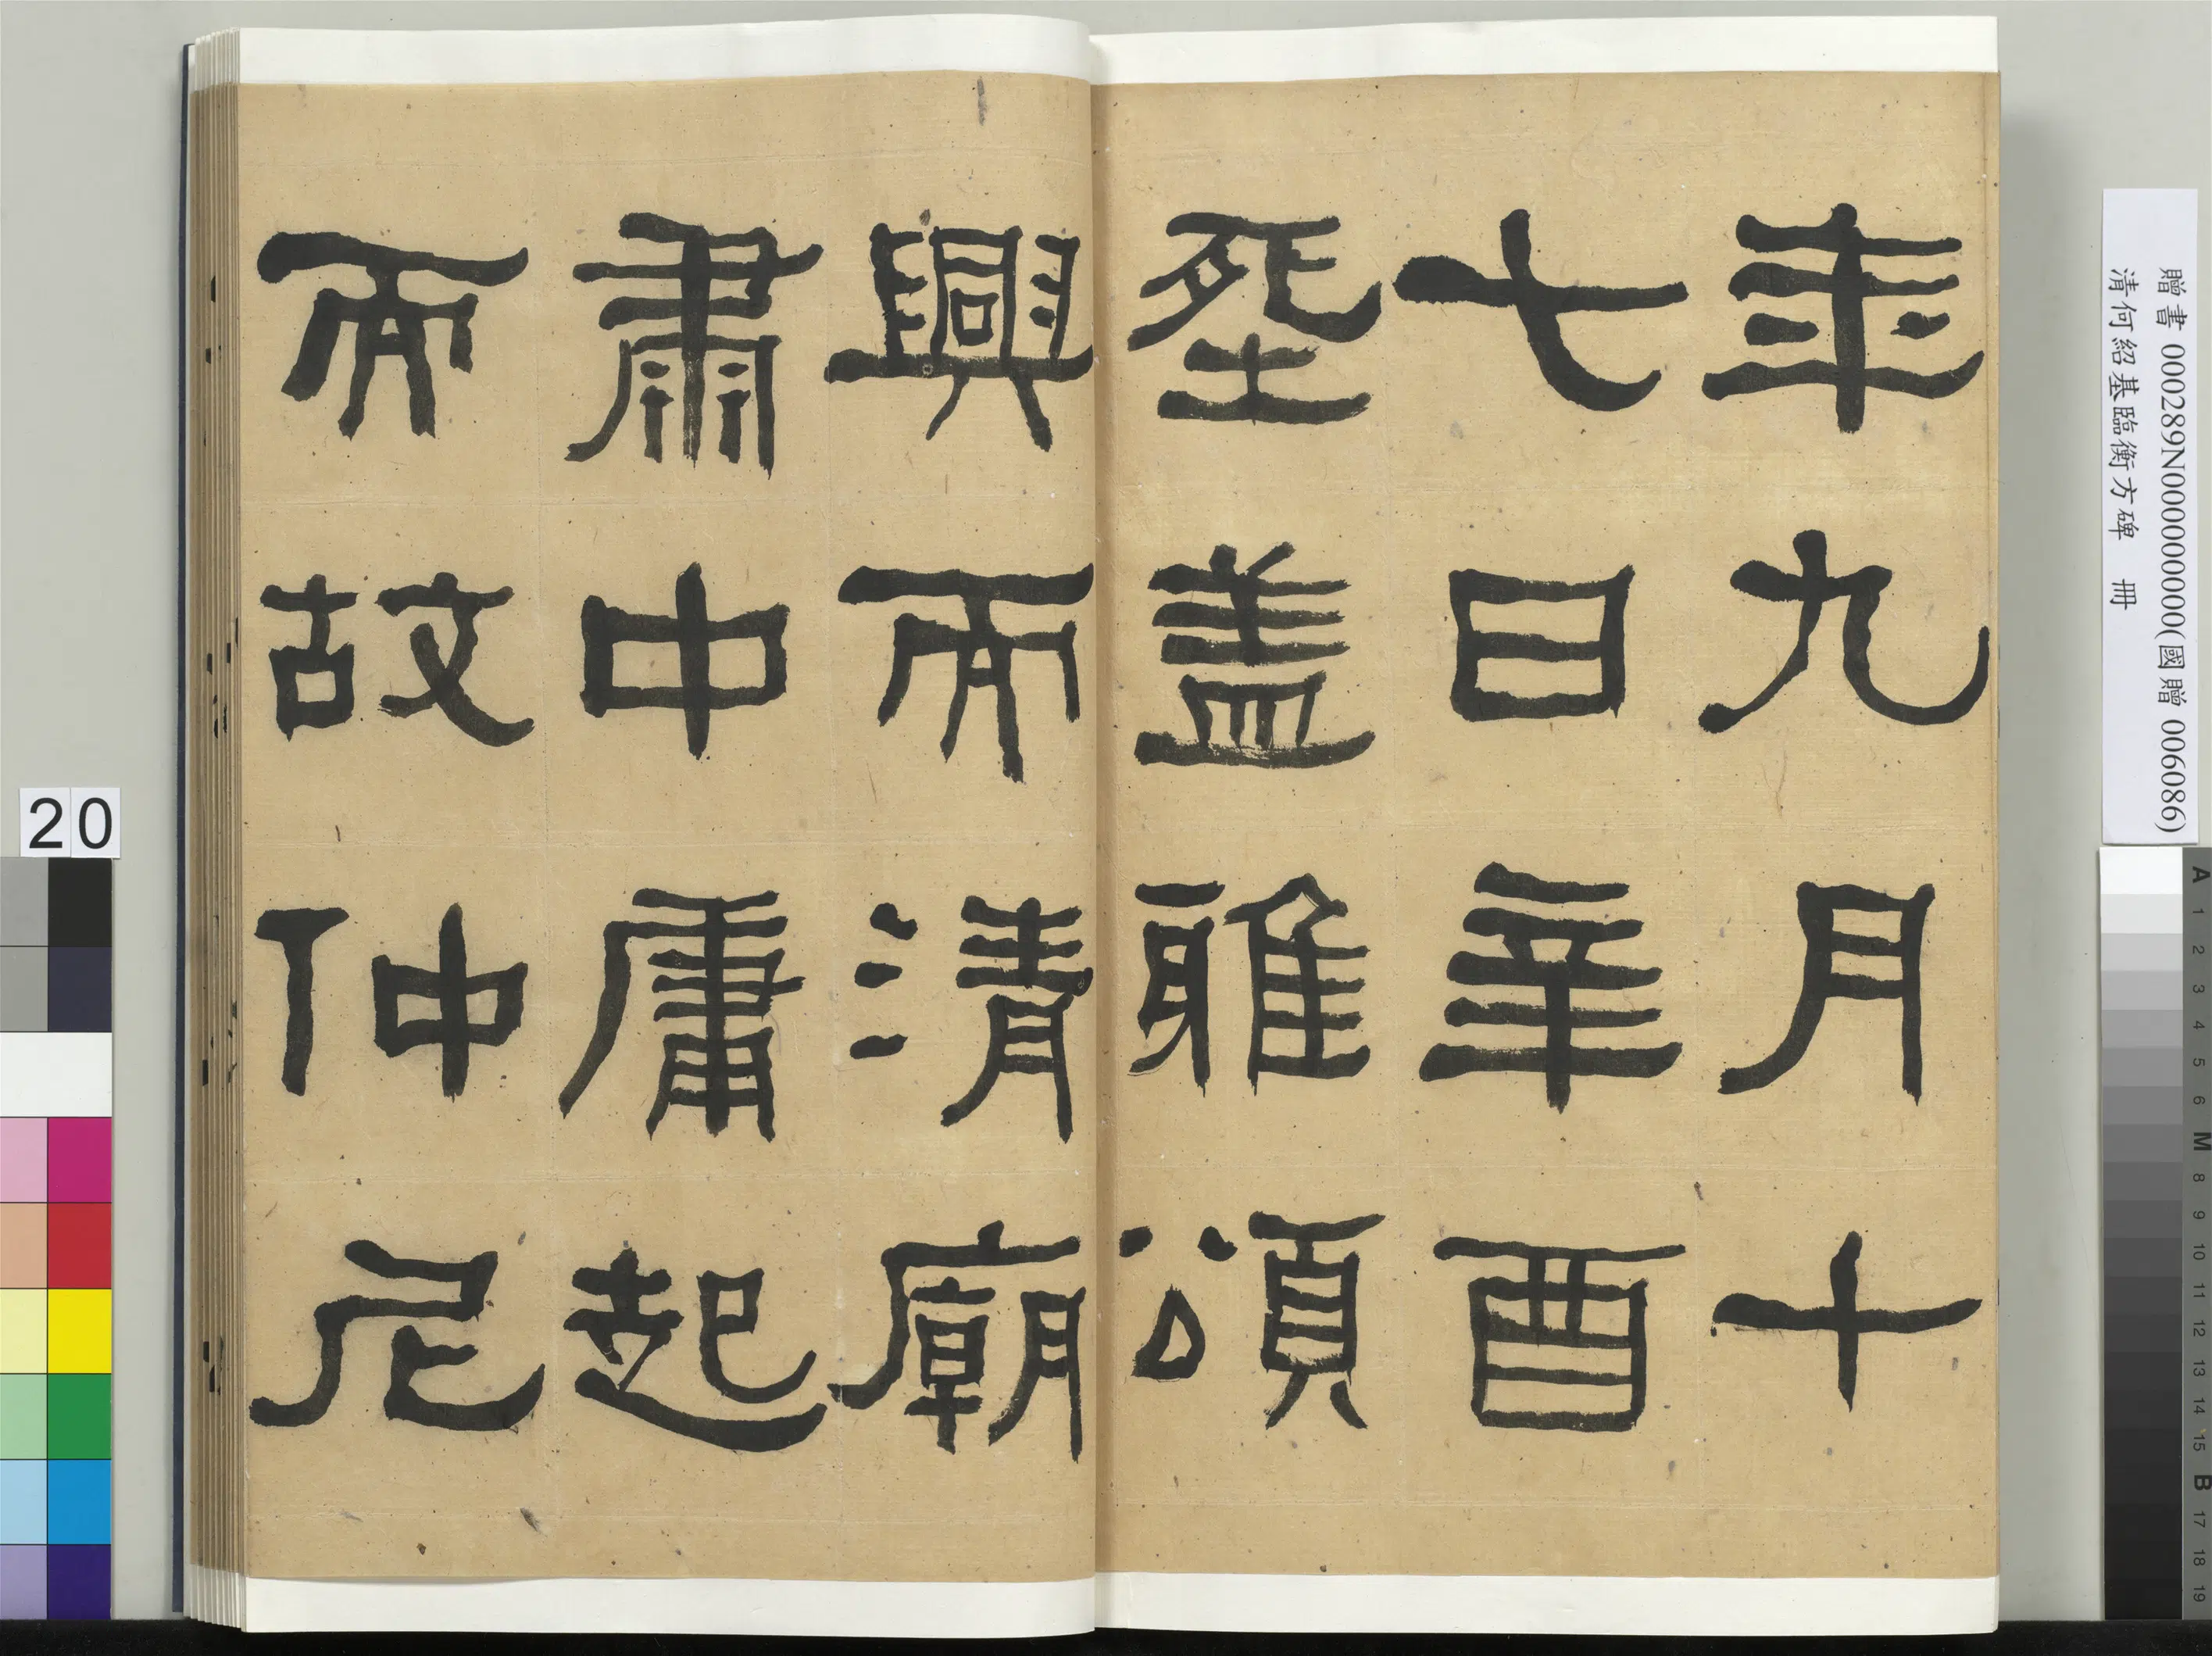 年九月十
七日辛酉
塟盖雅頌
興而清廟
肅中庸起
而故仲尼
贈書 000289N000000000(國贈 006086)
清何紹基臨衡方碑 冊
20
A 1 2 3 4 5 6 M 8 9 10 11 12 13 14 15 B 17 18 19